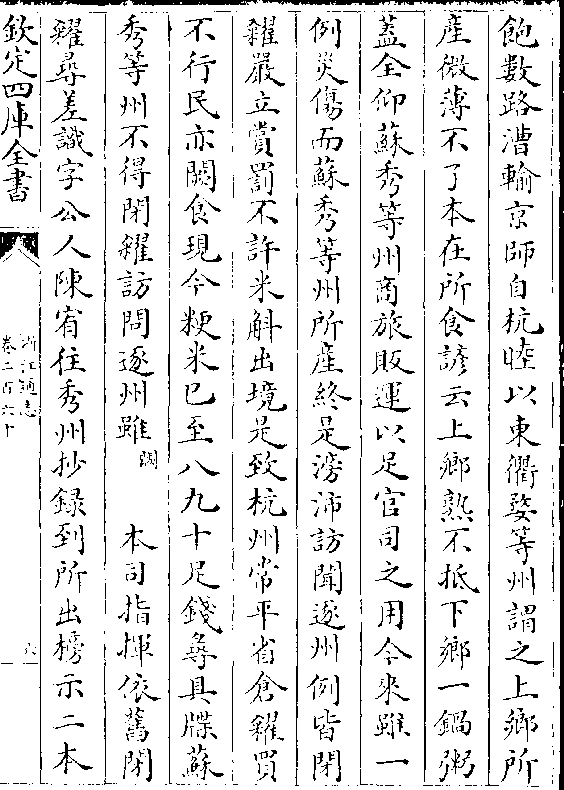 飽數路漕輸京師自杭睦以東衢婺等州謂之上鄉所
產微薄不了本在所食諺云上鄉熟不抵下鄉一鍋粥
蓋全仰蘇秀等州商旅販運以足官司之用今來雖一
例災傷而蘇秀等州所產終是滂沛訪聞逐州例皆閉
糴嚴立賞罰不許米斛出境是致杭州常平省倉糴買
不行民亦闕食現今粳米已至八九十足錢尋具牒蘇
秀等州不得閉糴訪問逐州雖闕 本司指揮依舊閉
糴尋差識字公人陳宥往秀州抄錄到所出榜示二本
欽定四庫全書
浙江通志
卷二百六十
六